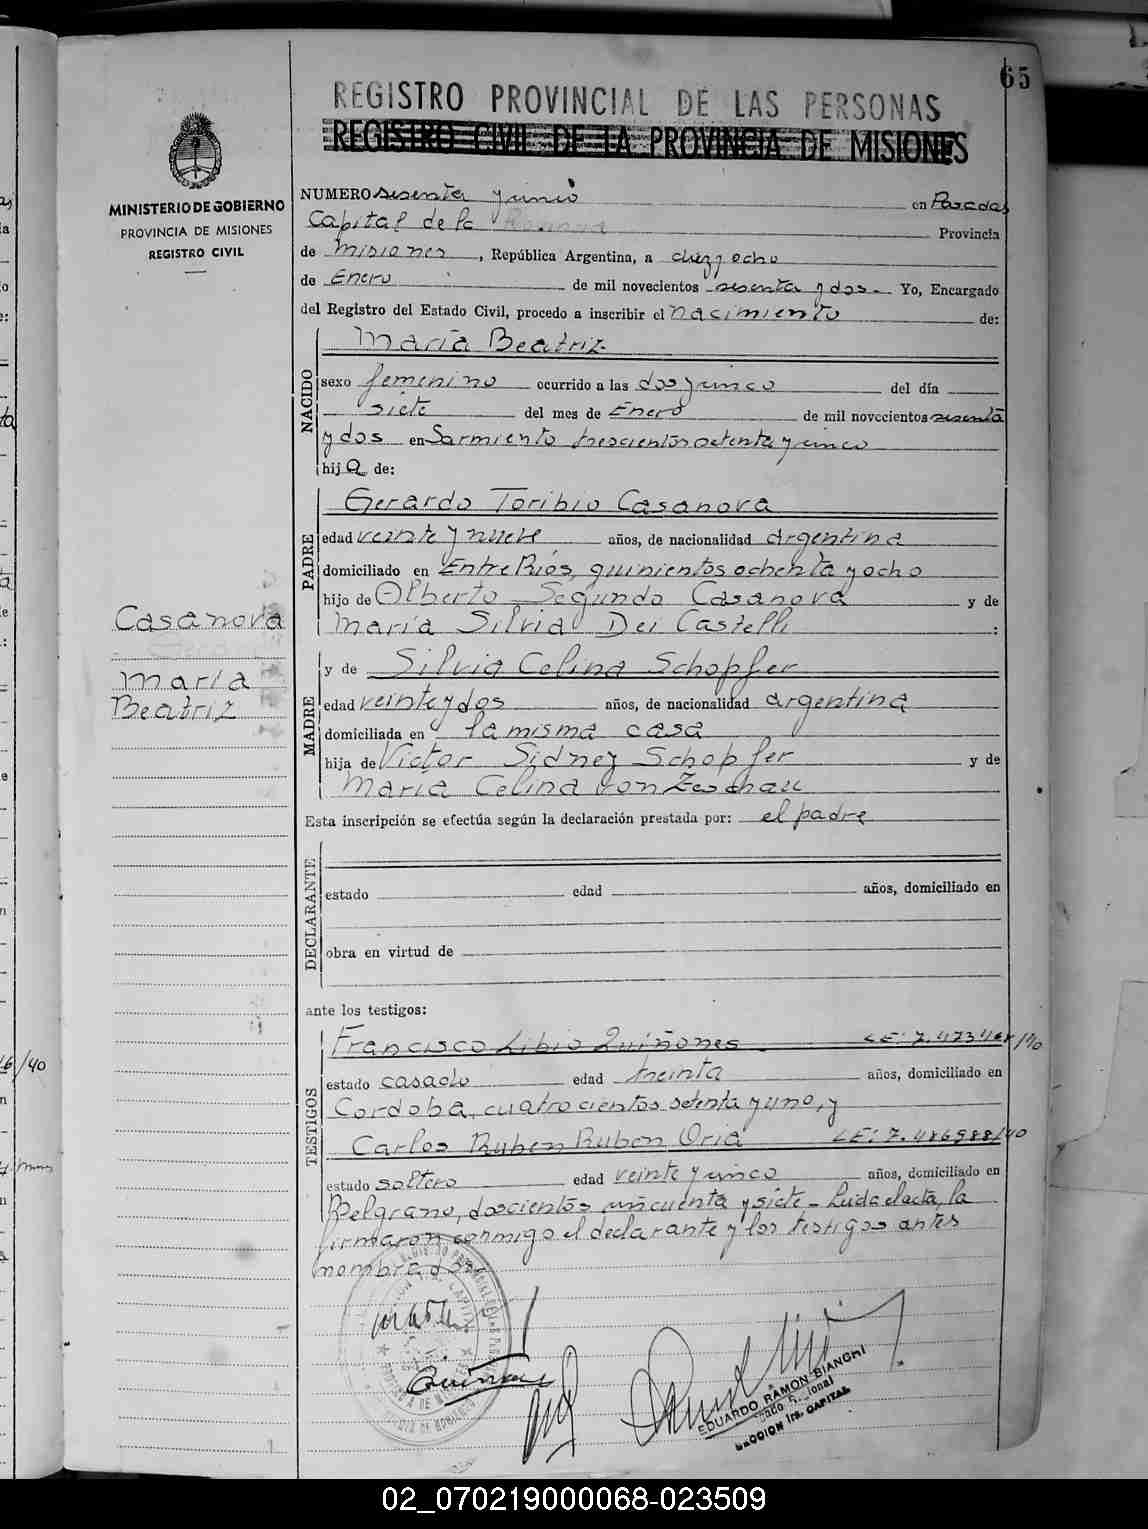 65
REGISTRO PROVINCIAL DE LAS PERSONAS
REGISTRO CIVIL DE LA PROVINCIA DE MISIONES
MINISTERIO DE GOBIERNO
PROVINCIA DE MISIONES
REGISTRO CIVIL
NUMERO sesenta y cinco en Posadas
Capital de la Provincia
de Misiones, República Argentina, a diez y ocho
de Enero de mil novecientos sesenta y dos- Yo, Encargado
del Registro del Estado Civil, procedo a inscribir el nacimiento de:
NACIDO
María Beatriz
sexo femenino ocurrido a las dos y cinco del día
siete del mes de Enero de mil novecientos sesenta
y dos en Sarmiento trescientos setenta y cinco
hija de:
PADRE
Gerardo Toribio Casanova
edad veinte y nueve años, de nacionalidad argentina
domiciliado en Entre Ríos, quinientos ochenta y ocho
hijo de Alberto Segundo Casanova y de
María Silvia Dei Castelli :
Casanova
María
Beatriz
MADRE
y de Silvia Celina Schopfer
edad veinte y dos años, de nacionalidad argentina
domiciliada en la misma casa
hija de Victor Sidney Schopfer y de
María Celina von Zeschau
Esta inscripción se efectúa según la declaración prestada por: el padre
DECLARANTE
estado edad años, domiciliado en
obra en virtud de
ante los testigos:
TESTIGOS
Francisco Libio Quiñones LE: 7.473468/40
estado casado edad treinta años, domiciliado en
Cordoba, cuatrocientos setenta y uno, y
Carlos Ruben Oria LE: 7.486988/40
estado soltero edad veinte y cinco años, domiciliado en
Belgrano, doscientos cincuenta y siete- Leida el acta, la
firmaron conmigo el declarante y los testigos antes
nombrados
Quiñones
EDUARDO RAMON BIANCHI
SECCION 1ra. CAPITAL
02_070219000068-023509